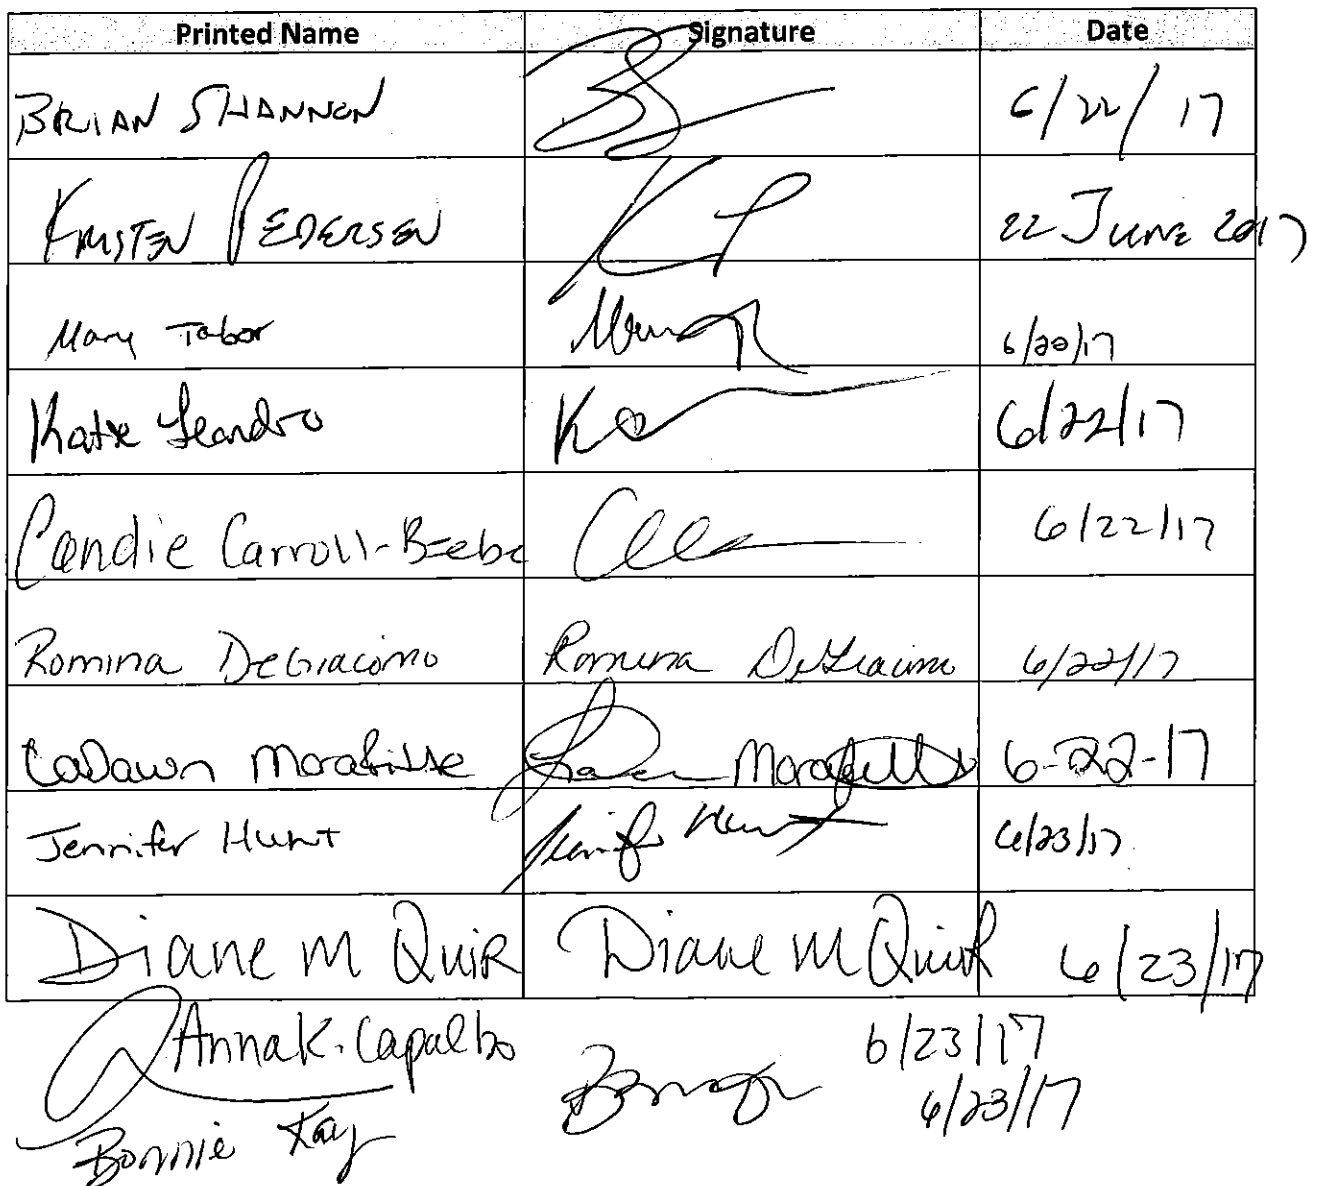 Printed Name Signature Date
BRIAN SHANNON 6/22/17
KRISTEN PEDERSEN 22 June 2017
Mary Tabor 6/22/17
Katie Leandro 6/22/17
Candie Carroll-Beebe 6/22/17
Romina DeGiacomo Romina DeGiacomo 6/22/17
LaDawn 6-22-17
Jennifer Hunt Jennifer Hunt 6/23/17
Diane M Quirk Diane M Quirk 6/23/17
Anna K. Capalbo 6/23/17
Bonnie Kay 6/23/17